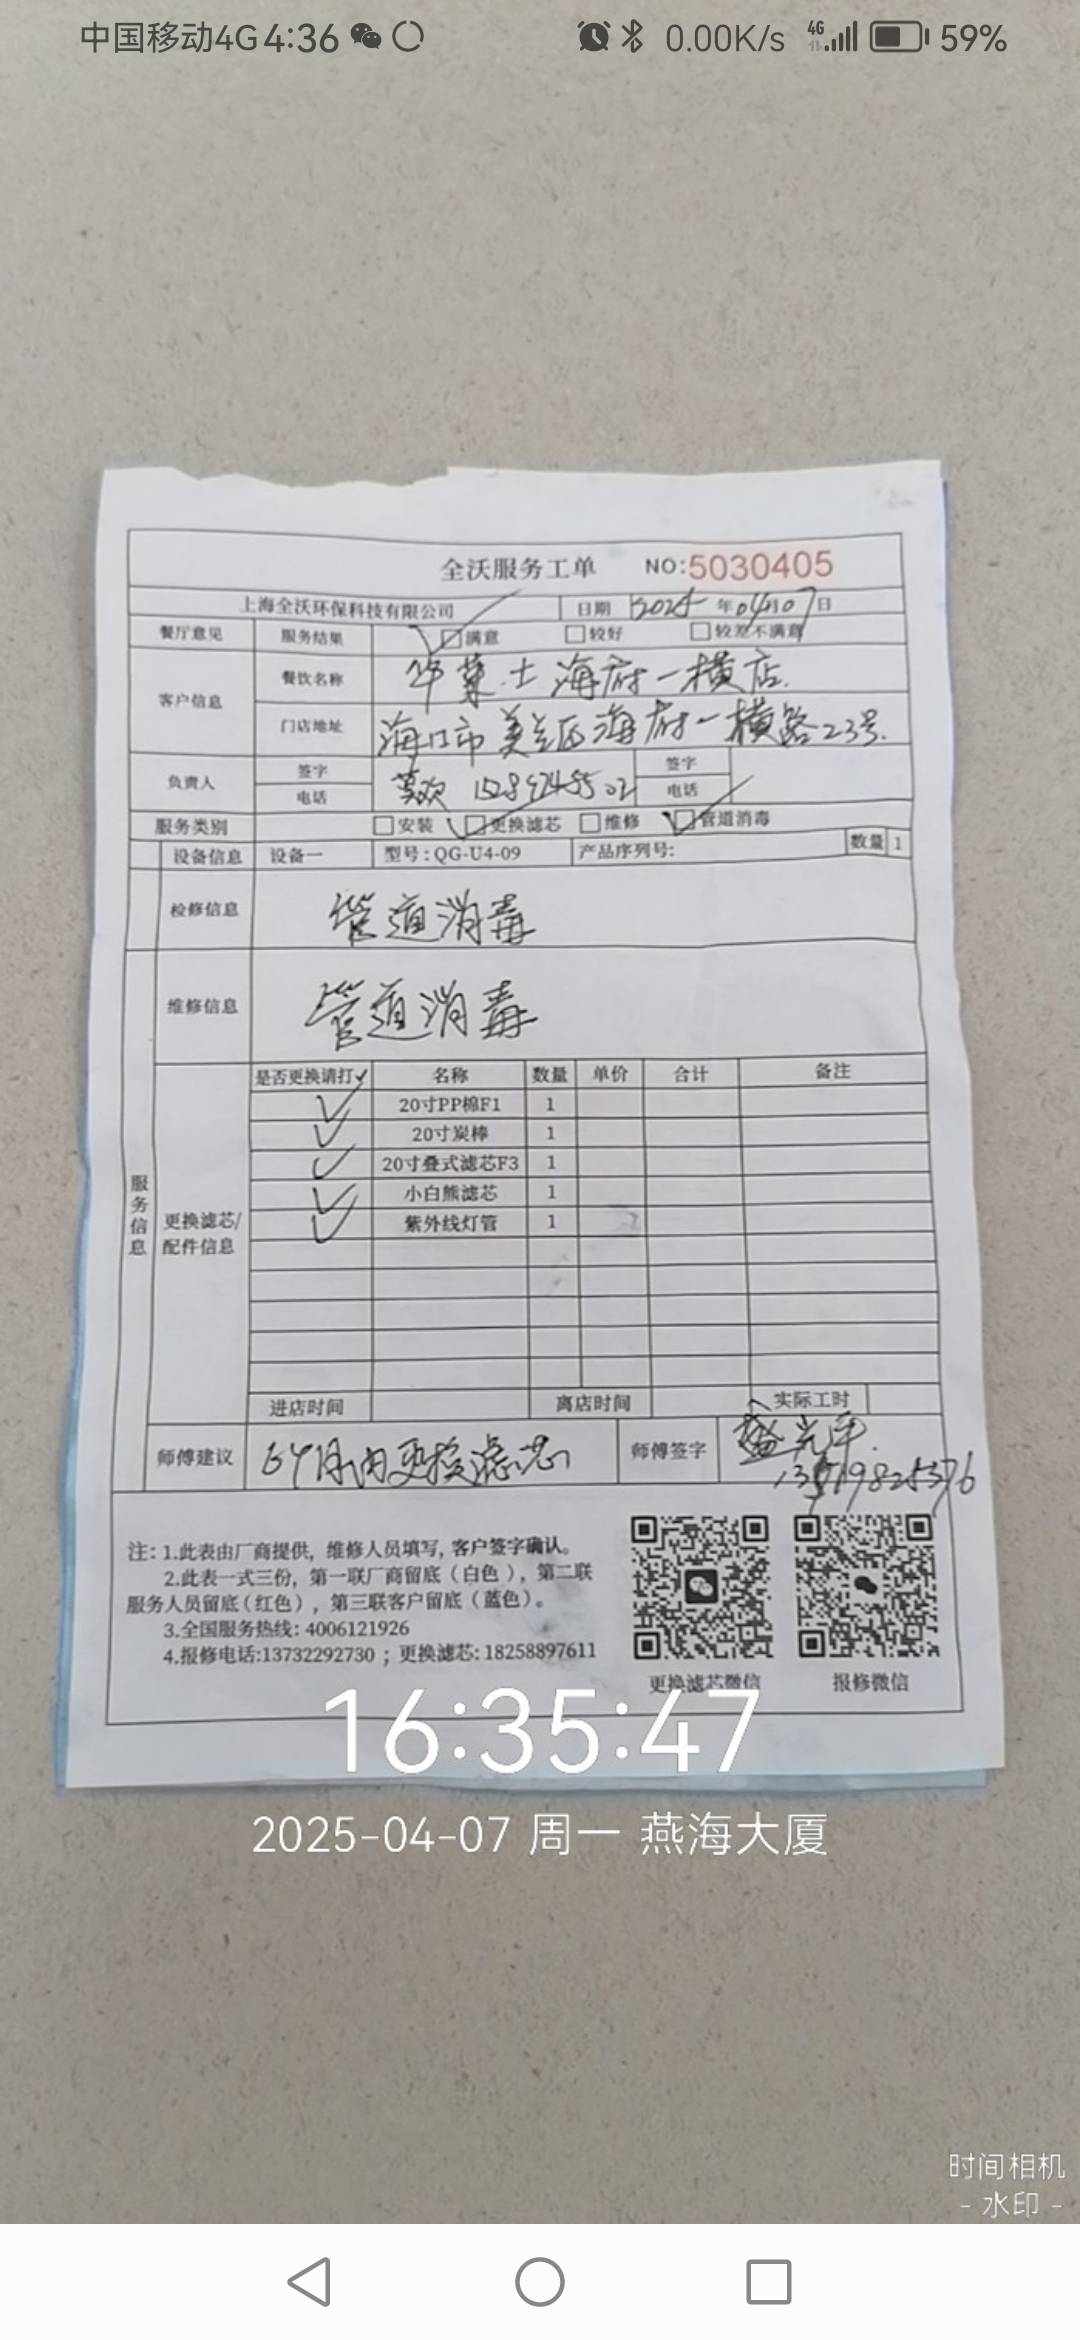 中国移动4G 4:36 0.00K/s 4G 59%
全沃服务工单 NO:5030405
上海全沃环保科技有限公司 日期 2025年04月07日
餐厅意见 服务结果 满意 较好 较差不满意
客户信息 餐饮名称 华莱士海府一横店.
门店地址 海口市美兰区海府一横路23号.
负责人 签字 签字
电话 电话
服务类别 安装 更换滤芯 维修 管道消毒
设备信息 设备一 型号:QG-U4-09 产品序列号: 数量 1
检修信息 管道消毒
维修信息 管道消毒
服务信息
更换滤芯/配件信息
是否更换请打✓ 名称 数量 单价 合计 备注
✓ 20寸PP棉F1 1
✓ 20寸炭棒 1
✓ 20寸叠式滤芯F3 1
✓ 小白熊滤芯 1
✓ 紫外线灯管 1
进店时间 离店时间 实际工时
师傅建议 6个月内更换滤芯 师傅签字
注: 1.此表由厂商提供, 维修人员填写, 客户签字确认。
2.此表一式三份, 第一联厂商留底(白色), 第二联
服务人员留底(红色), 第三联客户留底(蓝色)。
3.全国服务热线: 4006121926
4.报修电话:13732292730 ; 更换滤芯: 18258897611
更换滤芯微信 报修微信
16:35:47
2025-04-07 周一 燕海大厦
时间相机
- 水印 -